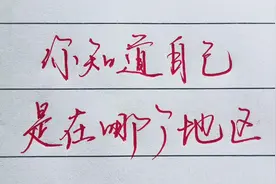 你知道自己
是在哪个地区